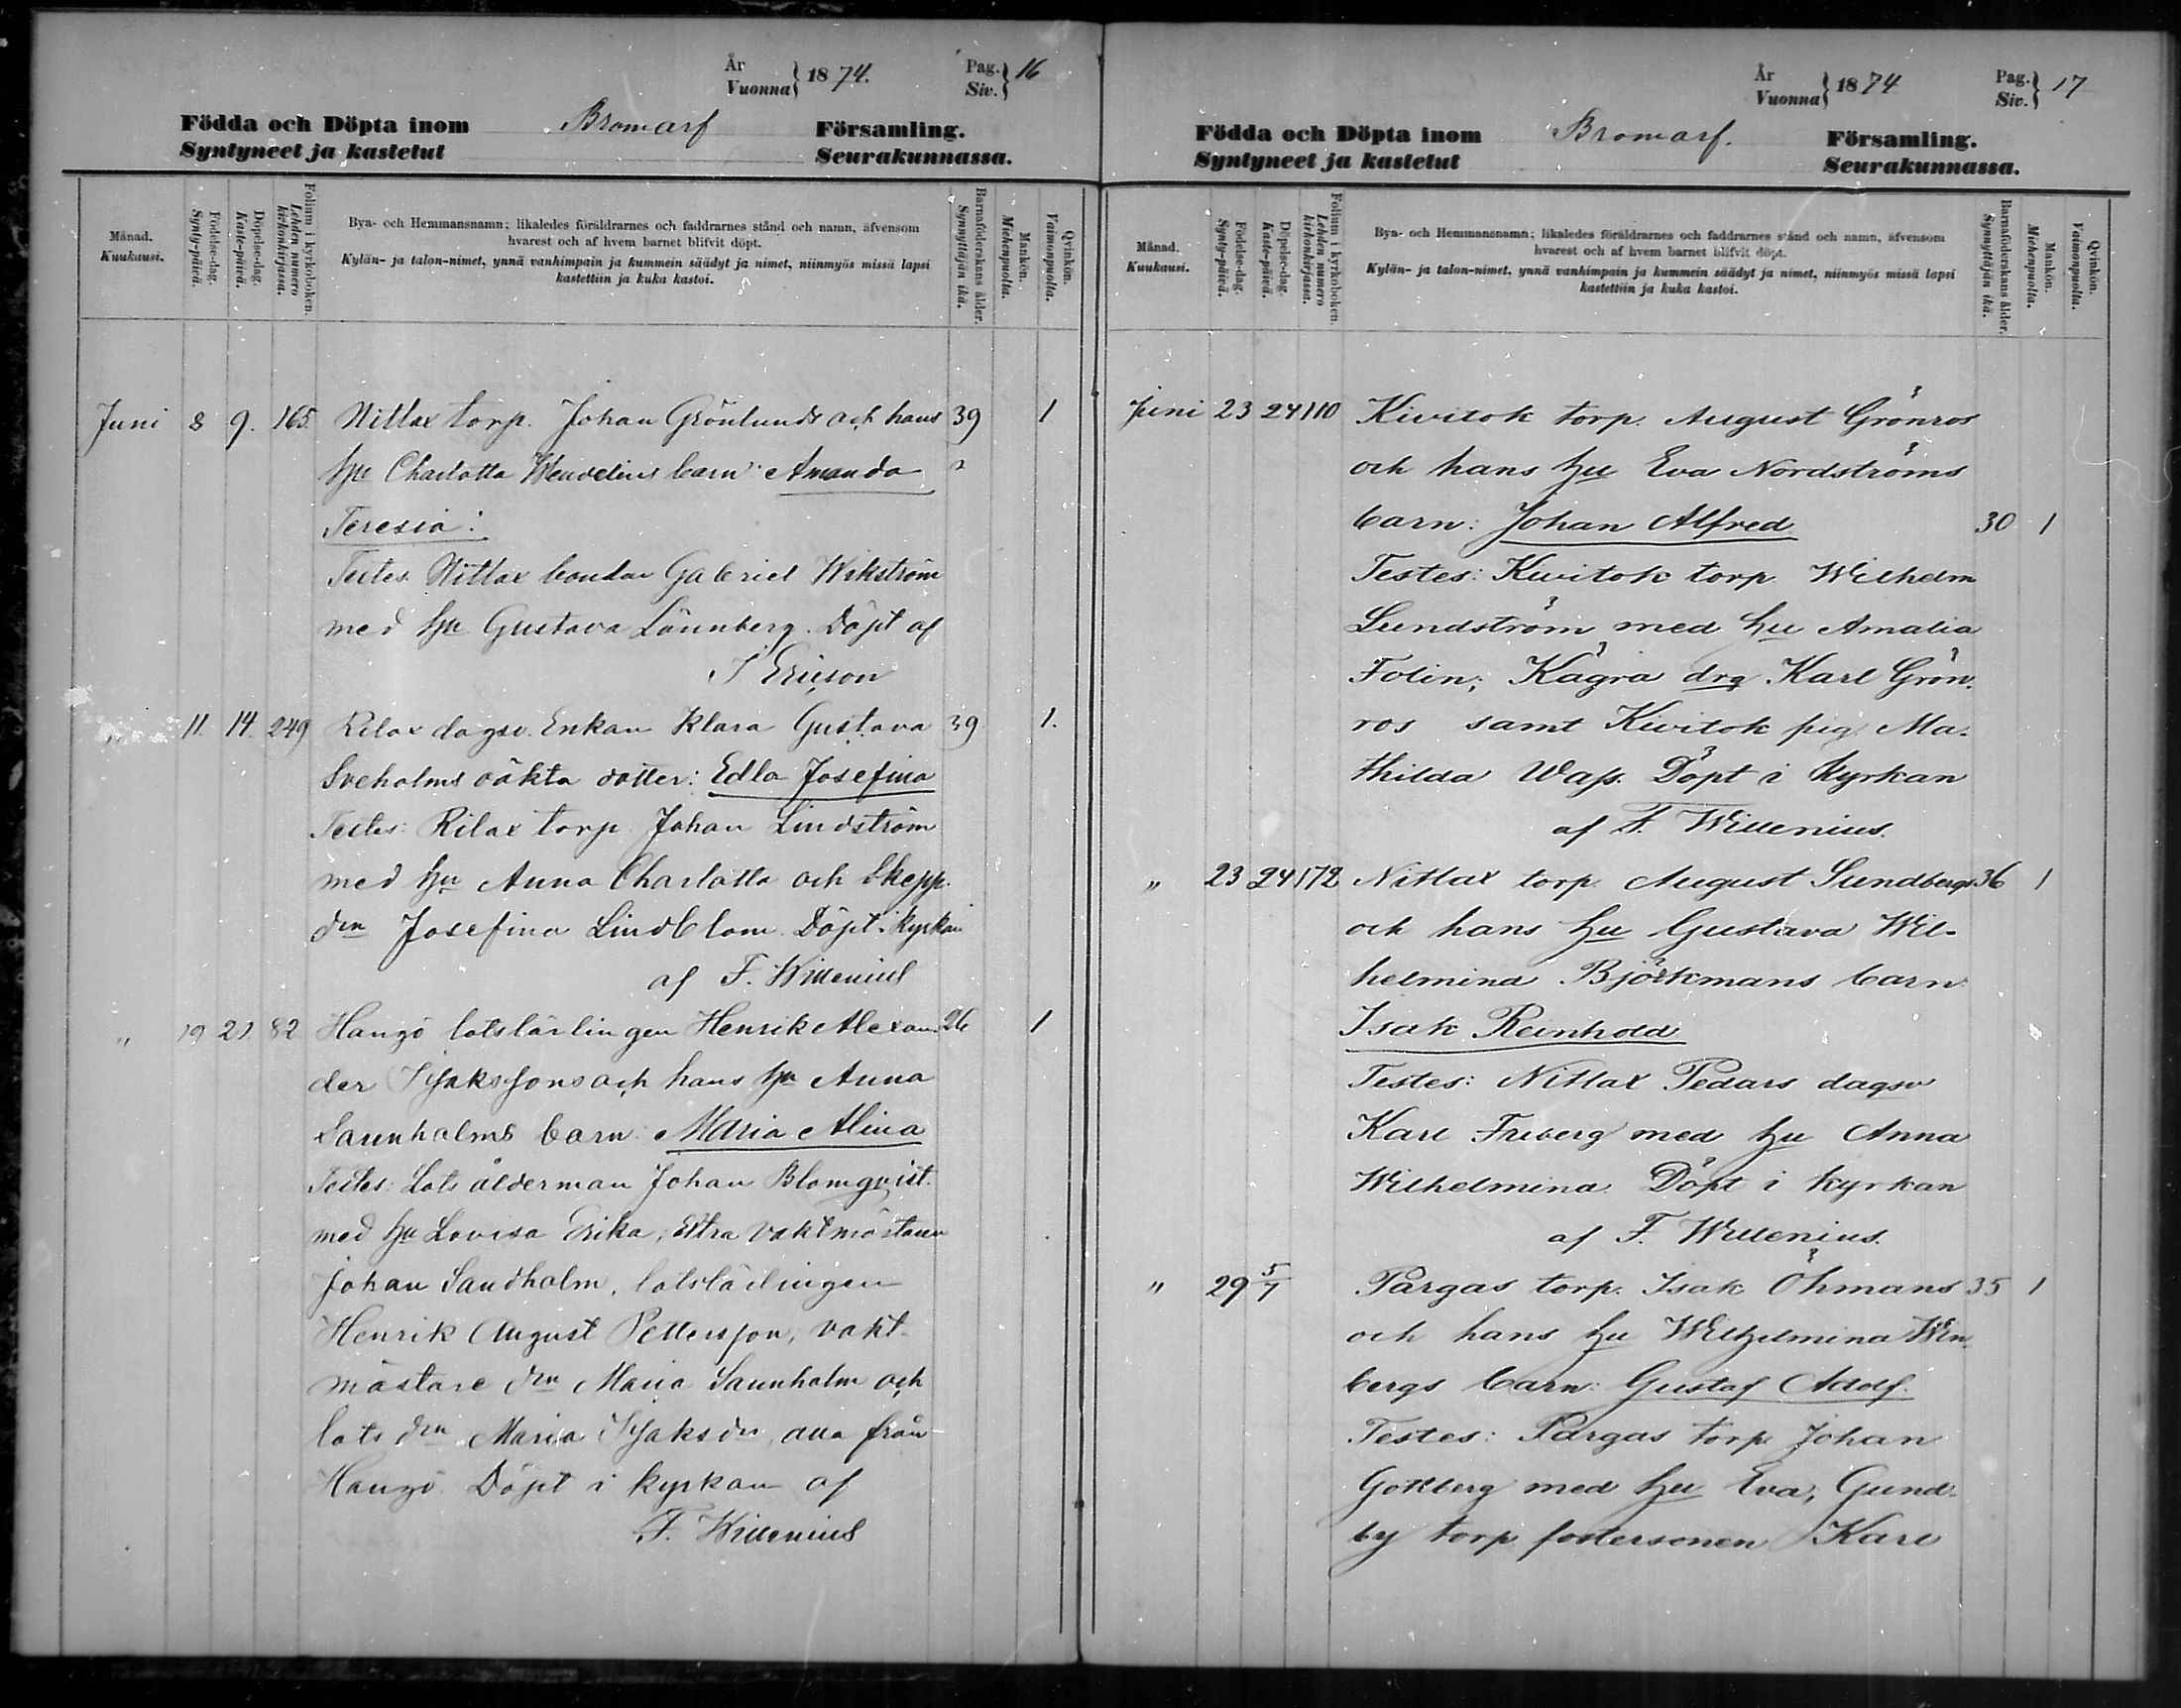 År
Vuonna } 1874.
Pag.
Siv. } 16
Födda och Döpta inom Bromarf Församling.
Syntyneet ja kastetut Seurakunnassa.
Månad.
Kuukausi.
Födelse-dag.
Synty-päivä.
Döpelse-dag.
Kaste-päivä.
Folium i kyrkoboken.
Lehden numero
kirkonkirjassa.
Bya- och Hemmansnamn; likaledes föräldrarnes och faddrarnes stånd och namn, äfvensom
hvarest och af hvem barnet blifvit döpt.
Kylän- ja talon-nimet, ynnä vanhimpain ja kummein säädyt ja nimet, niinmyös missä lapsi
kastettiin ja kuka kastoi.
Barnaföderskans ålder.
Synnyttäjän ikä.
Mankön.
Miehenpuolta.
Qvinkön.
Vaimonpuolta.
Juni 8 9. 165. Nitlax torp. Johan Grönlunds och hans 39 1
hu Charlotta Wendelins barn: Amanda
Teresia:
Testes. Nitlax bondan Gabriel Wikström
med hu Gustava Lönnberg. Döpt af
J Ericson
" 11. 14. 249 Rilax dagsv. Enkan Klara Gustava 39 1.
Sveholms oäkta dotter: Edla Josefina
Testes: Rilax torp. Johan Lindström
med hu Anna Charlotta och Skepp.
drn Josefina Lindblom. Döpt i kyrkan
af F. Willenius
" 19 21. 82 Hangö lotslärlingen Henrik Alexan- 26 1
der Isakssons och hans hu Anna
Sannholms barn: Maria Alina
Testes: Lots ålderman Johan Blomqvist
med hu Lovisa Erika, Extra vaktmästaren
Johan Sandholm, lotslärlingen
Henrik August Pettersson, vakt-
mästare drn Maria Sannholm och
lots drn Maria Isaksdr, alla från
Hangö. Döpt i kyrkan af
F. Willenius
År
Vuonna } 1874
Pag.
Siv. } 17
Födda och Döpta inom Bromarf. Församling.
Syntyneet ja kastetut Seurakunnassa.
Månad.
Kuukausi.
Födelse-dag.
Synty-päivä.
Döpelse-dag.
Kaste-päivä.
Folium i kyrkoboken.
Lehden numero
kirkonkirjassa.
Bya- och Hemmansnamn; likaledes föräldrarnes och faddrarnes stånd och namn, äfvensom
hvarest och af hvem barnet blifvit döpt.
Kylän- ja talon-nimet, ynnä vanhimpain ja kummein säädyt ja nimet, niinmyös missä lapsi
kastettiin ja kuka kastoi.
Barnaföderskans ålder.
Synnyttäjän ikä.
Mankön.
Miehenpuolta.
Qvinkön.
Vaimonpuolta.
Juni 23 24 110 Kivitok torp. August Grönros
och hans hu Eva Nordströms
barn: Johan Alfred 30 1
Testes: Kivitok torp Wilhelm
Lundström med hu Amalia
Folin; Kägra drg Karl Grön-
ros samt Kivitok pig. Ma-
thilda Wass. Döpt i Kyrkan
af F. Willenius.
" 23 24 172 Nitlax torp. August Sundbergs 36 1
och hans hu Gustava Wil-
helmina Björkmans barn
Isak Reinhold
Testes: Nitlax Pedars dagsv
Karl Friberg med hu Anna
Wilhelmina. Döpt i kyrkan
af F. Willenius.
" 29 5/7 Pargas torp. Isak Öhmans 35 1
och hans hu Wilhelmina Win-
bergs barn: Gustaf Adolf.
Testes: Pargas torp Johan
Götberg med hu Eva, Gund-
by torp fostersonen Karl